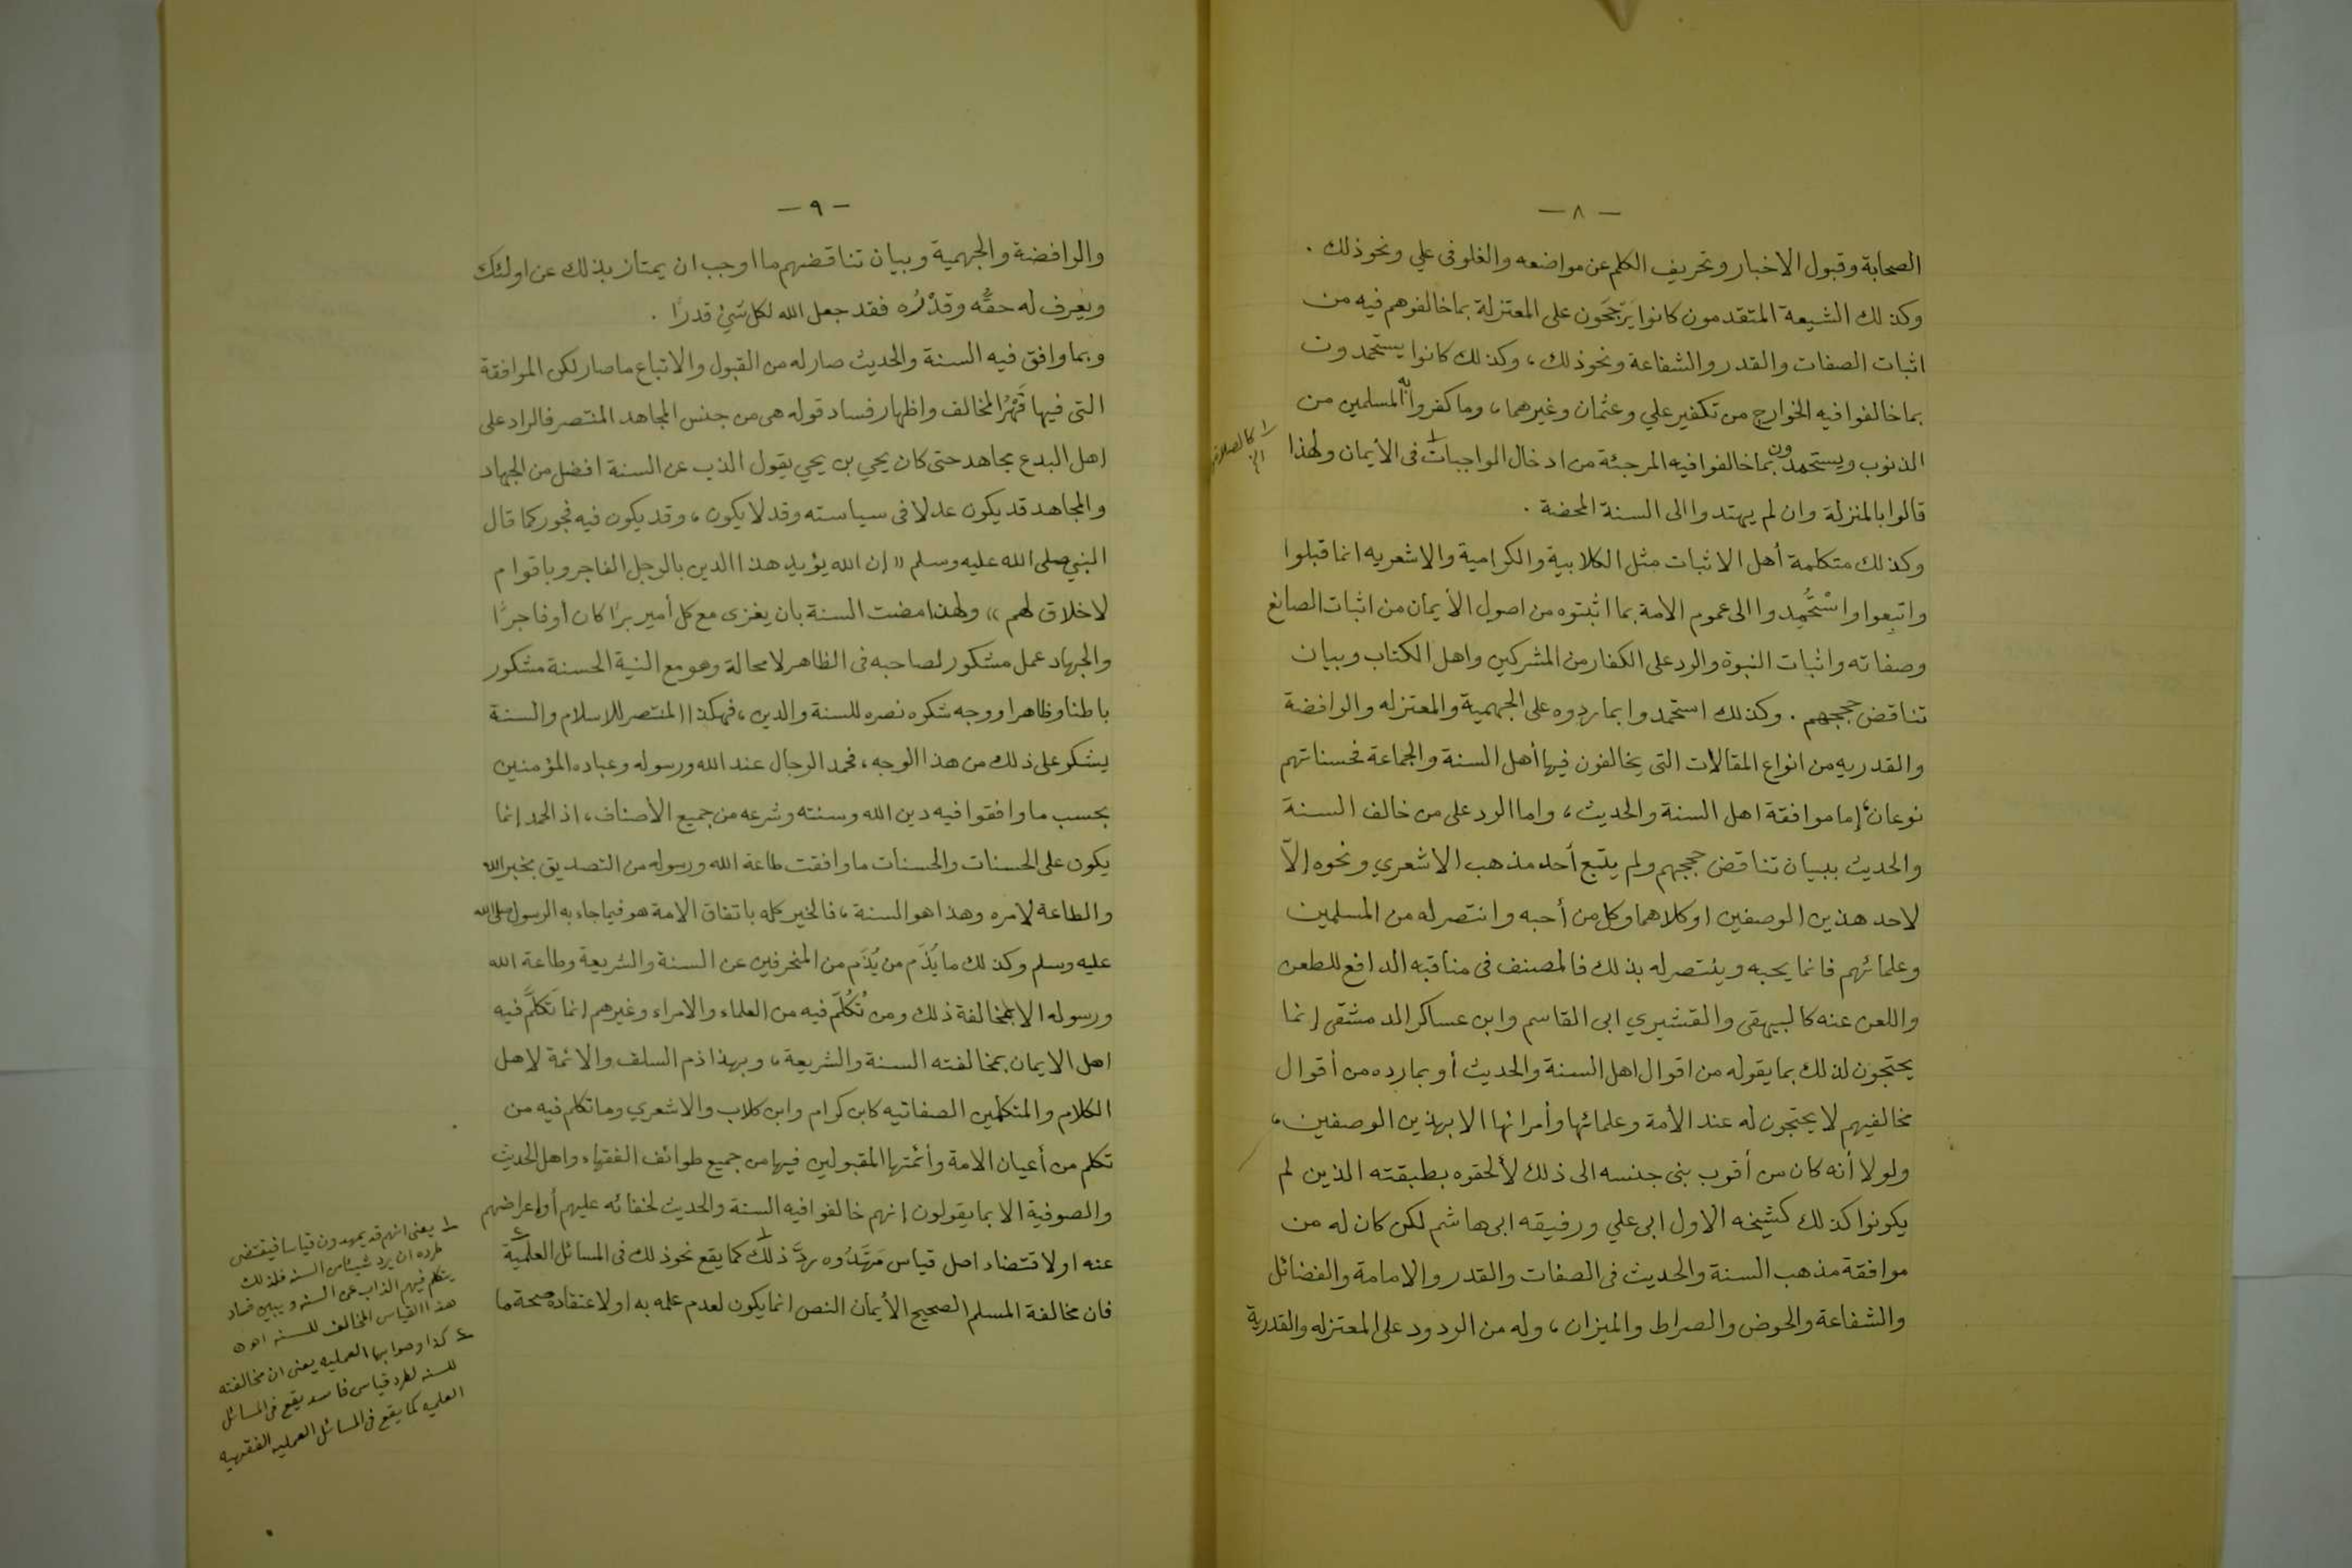 — ٨ —
الصحابة وقبول الاخبار وتحريف الكلم عن مواضعه والغلو فى علي ونحو ذلك .
وكذلك الشيعة المتقدمون كانوا يَرَجَحَون على المعتزلة بما خالفوهم فيه من
اثبات الصفات والقدر والشفاعة ونحو ذلك ، وكذلك كانوا يستحمدون
بما خالفوا فيه الخوارج من تكفير علي وعثمان وغيرهما ، وما كفروا به المسلمين من
الذنوب ويستحمدون بما خالفوا فيه المرجئة من ادخال الواجبات ١ فى الأيمان ولهذا
١ كالصلاة
قالوا بالمنزلة وان لم يهتدوا الى السنة المحضة .
وكذلك متكلمة أهل الاثبات مثل الكلابية والكرامية والاشعريه انما قبلوا
واتبِعوا واسْتُحْمِدوا الى عموم الامة بما اثبتوه من اصول الأيمان من اثبات الصانع
وصفاته واثبات النبوة والرد على الكفار من المشركين واهل الكتاب وبيان
تناقض حججهم . وكذلك استحمدوا بما ردوه على الجهمية والمعتزله والرافضة
والقدريه من انواع المقالات التى يخالفون فيها أهل السنة والجماعة فحسناتهم
نوعان ، إما موافقة اهل السنة والحديث ، واما الرد على من خالف السنة
والحديث ببيان تناقض حججهم ولم يتبع أحد مذهب الاشعري ونحوه إلاّ
لاحد هذين الوصفين او كلاهما وكل من أحبه وانتصر له من المسلمين
وعلمائهم فانما يحبه وينتصر له بذلك فالمصنف فى مناقبه الدافع للطعن
واللعن عنه كالبيهقى والقشيري ابى القاسم وابن عساكر الدمشقى إنما
يحتجون لذلك بما يقوله من اقوال اهل السنة والحديث أو بما رده من أقوال
مخالفيهم لا يحتجون له عند الأمة وعلمائها وأمرائها الا بهذين الوصفين ،
ولولا أنه كان من أقرب بنى جنسه الى ذلك لألحقوه بطبقته الذين لم
يكونوا كذلك كشيخه الاول ابى علي ورفيقه ابى هاشم لكن كان له من
موافقة مذهب السنة والحديث فى الصفات والقدر والامامة والفضائل
والشفاعة والحوض والصراط والميزان ، وله من الردود على المعتزله والقدرية
— ٩ —
والرافضة والجهمية وبيان تناقضهم ما اوجب ان يمتاز بذلك عن اولئك
ويَعْرف له حقُّه وقدْرُه فقد جعل الله لكل شئ قدرًا .
وبما وافق فيه السنة والحديث صار له من القبول والاتباع ما صار لكن الموافقة
التى فيها قَهْرُ المخالف واظهار فساد قوله هى من جنس المجاهد المنتصر فالراد على
اهل البدع مجاهد حتى كان يحي بن يحي يقول الذب عن السنة افضل من الجهاد
والمجاهد قد يكون عدلا فى سياسته وقد لا يكون ، وقد يكون فيه فجور كما قال
النبي صلى الله عليه وسلم « إن الله يؤيد هذا الدين بالرجل الفاجر وباقوام
لا خلاق لهم » ولهذا مضت السنة بان يغزى مع كل أمير برًا كان أو فاجرًا
والجهاد عمل مشكور لصاحبه فى الظاهر لا محالة وهو مع النية الحسنة مشكور
باطنا وظاهرا ووجه شكره نصره للسنة والدين ، فهكذا المنتصر للاسلام والسنة
يشكر على ذلك من هذا الوجه ، فحمد الرجال عند الله ورسوله وعباده المؤمنين
بحسب ما وافقوا فيه دين الله وسنته وشرعه من جميع الأصناف ، اذ الحمد إنما
يكون على الحسنات والحسنات ما وافقت طاعة الله ورسوله من التصديق بخبر الله
والطاعة لامره وهذا هو السنة ، فالخير كله باتفاق الامة هو فيما جاء به الرسول صلى الله
عليه وسلم وكذلك ما يُذَم من يُذَم من المنحرفين عن السنة والشريعة وطاعة الله
ورسوله الا بمخالفة ذلك ومن تُكُلّم فيه من العلماء والامراء وغيرهم إنما تَكلَّم فيه
اهل الايمان بمخالفته السنة والشريعة ، وبهذا ذم السلف والائمة لاهل
الكلام والمتكلمين الصفاتيه كابن كرام وابن كلاب والاشعري وما تكلم فيه من
تكلم من أعيان الامة وأئمتها المقبولين فيها من جميع طوائف الفقهاء واهل الحديث
والصوفية الا بما يقولون إنهم خالفوا فيه السنة والحديث لخفائه عليهم أو إعراضهم
عنه او لاقتضاء اصل قياس مَهَّدُوه ردَّ ذلك ١ كما يقع نحو ذلك فى المسائل العلميّة ٢
فان مخالفة المسلم الصحيح الأيمان النص انما يكون لعدم علمه به او لاعتقاده صحة ما
١ يعنى انهم قد يمهدون قياسا فيقتضى
طرده ان يرد شيئا من السنه فلذلك
يتكلم فيهم الذاب عن السنه ويبين فساد
هذا القياس المخالف للسنه اهـ
٢ كذا وصوابها العمليه يعنى ان مخالفته
للسنه لطرد قياس فاسد يقع فى المسائل
العلميه كما يقع فى المسائل العمليه الفقهيه